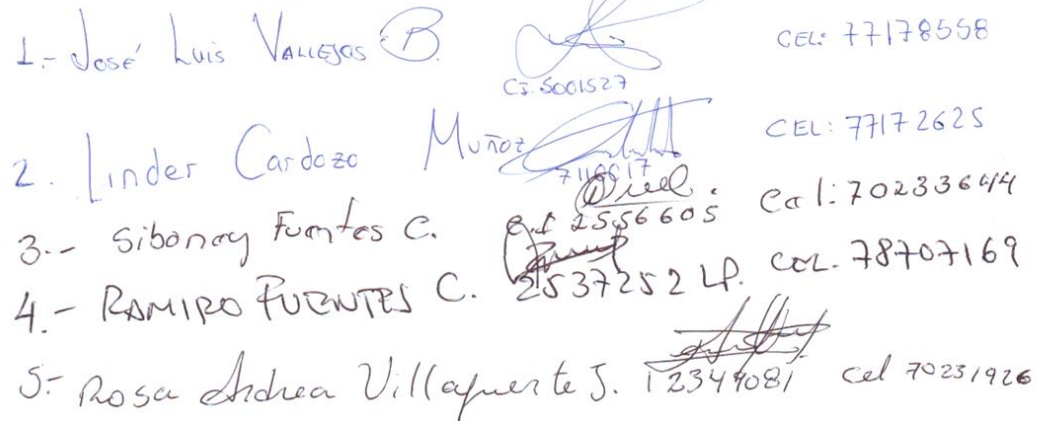 1.- José Luis VALLEJOS B. CEL: 77178558
CI. 5001527
2. Linder Cardozo Muñoz CEL: 77172625
3.- Sibonay Fuentes C. C.I 2556605 Cel: 70233644
4.- RAMIRO FUENTES C. 2537252 LP. CEL. 78707169
5.- Rosa Andrea Villafuerte J. 12349081 Cel 70231926